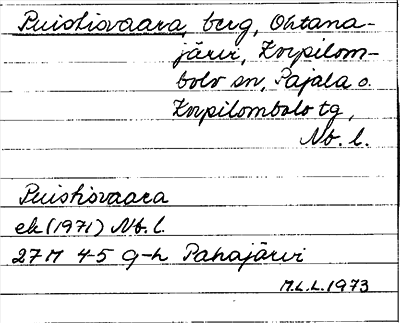 Puistisvaara, berg, Ohtana-
järvi, Korpilom-
bolo sn, Pajala o.
Korpilombolo tg,
Nb. l.
Puistisvaara
ek (1971) Nb. l.
27M 4-5 g-h Pahajärvi
M.L.L. 1973